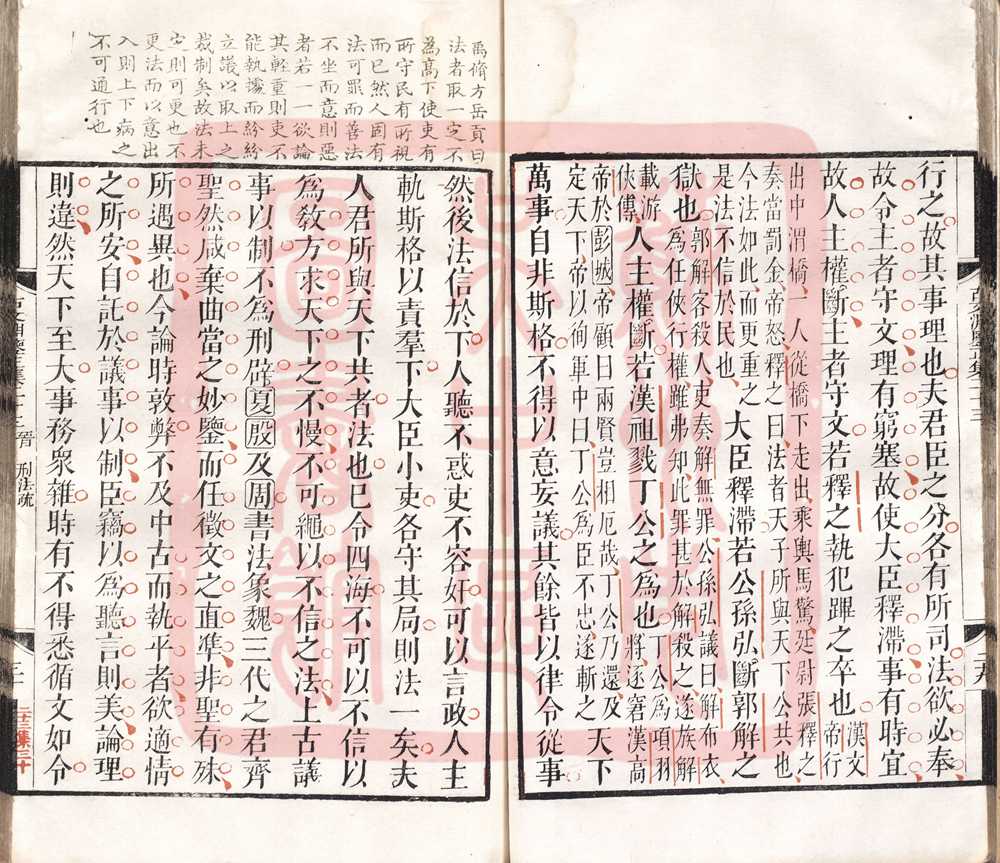 行之故其事理也夫君臣之分各有所司法欲必奉
故令主者守文理有窮塞故使大臣釋滯事有時宜
故人主權斷主者守文若釋之執犯蹕之卒也漢文帝行
出中渭橋一人從橋下走出乘輿馬驚廷尉張釋之
奏當罰金帝怒釋之曰法者天子所與天下公共也
今法如此而更重之
是法不信於民也
大臣釋滯若公孫弘斷郭解之
獄也
郭解客殺人吏奏解無罪公孫弘議曰解布衣
爲任俠行權雖弗知此罪甚於解殺之遂族解
載游
俠傳
人主權斷若漢祖戮丁公之爲也
丁公爲項羽
將逐窘漢高
帝於彭城帝顧曰兩賢豈相厄哉丁公乃還及
定天下帝以徇軍中曰丁公爲臣不忠遂斬之
天下
萬事自非斯格不得以意妄議其餘皆以律令從事
禹脩方岳貢曰
法者取一定不
爲高下使吏有
所守民有所視
而已然人固有
法可罪而善法
不坐而意則惡
者若一一欲論
其輕重則吏不
能執據而紛紛
立議以取上之
裁制矣故法未
定則可更也不
更法而以意出
入則上下病之
不可通行也
然後法信於下人聽不惑吏不容奸可以言政人主
軌斯格以責羣下大臣小吏各守其局則法一矣夫
人君所與天下共者法也已令四海不可以不信以
爲敎方求天下之不慢不可繩以不信之法上古議
事以制不爲刑辟夏殷及周書法象魏三代之君齊
聖然咸棄曲當之妙鑒而任徵文之直準非聖有殊
所遇異也今論時敦弊不及中古而執平者欲適情
之所安自託於議事以制臣竊以爲聽言則美論理
則違然天下至大事務衆雜時有不得悉循文如令
晉 刑法疏
二十三集三十